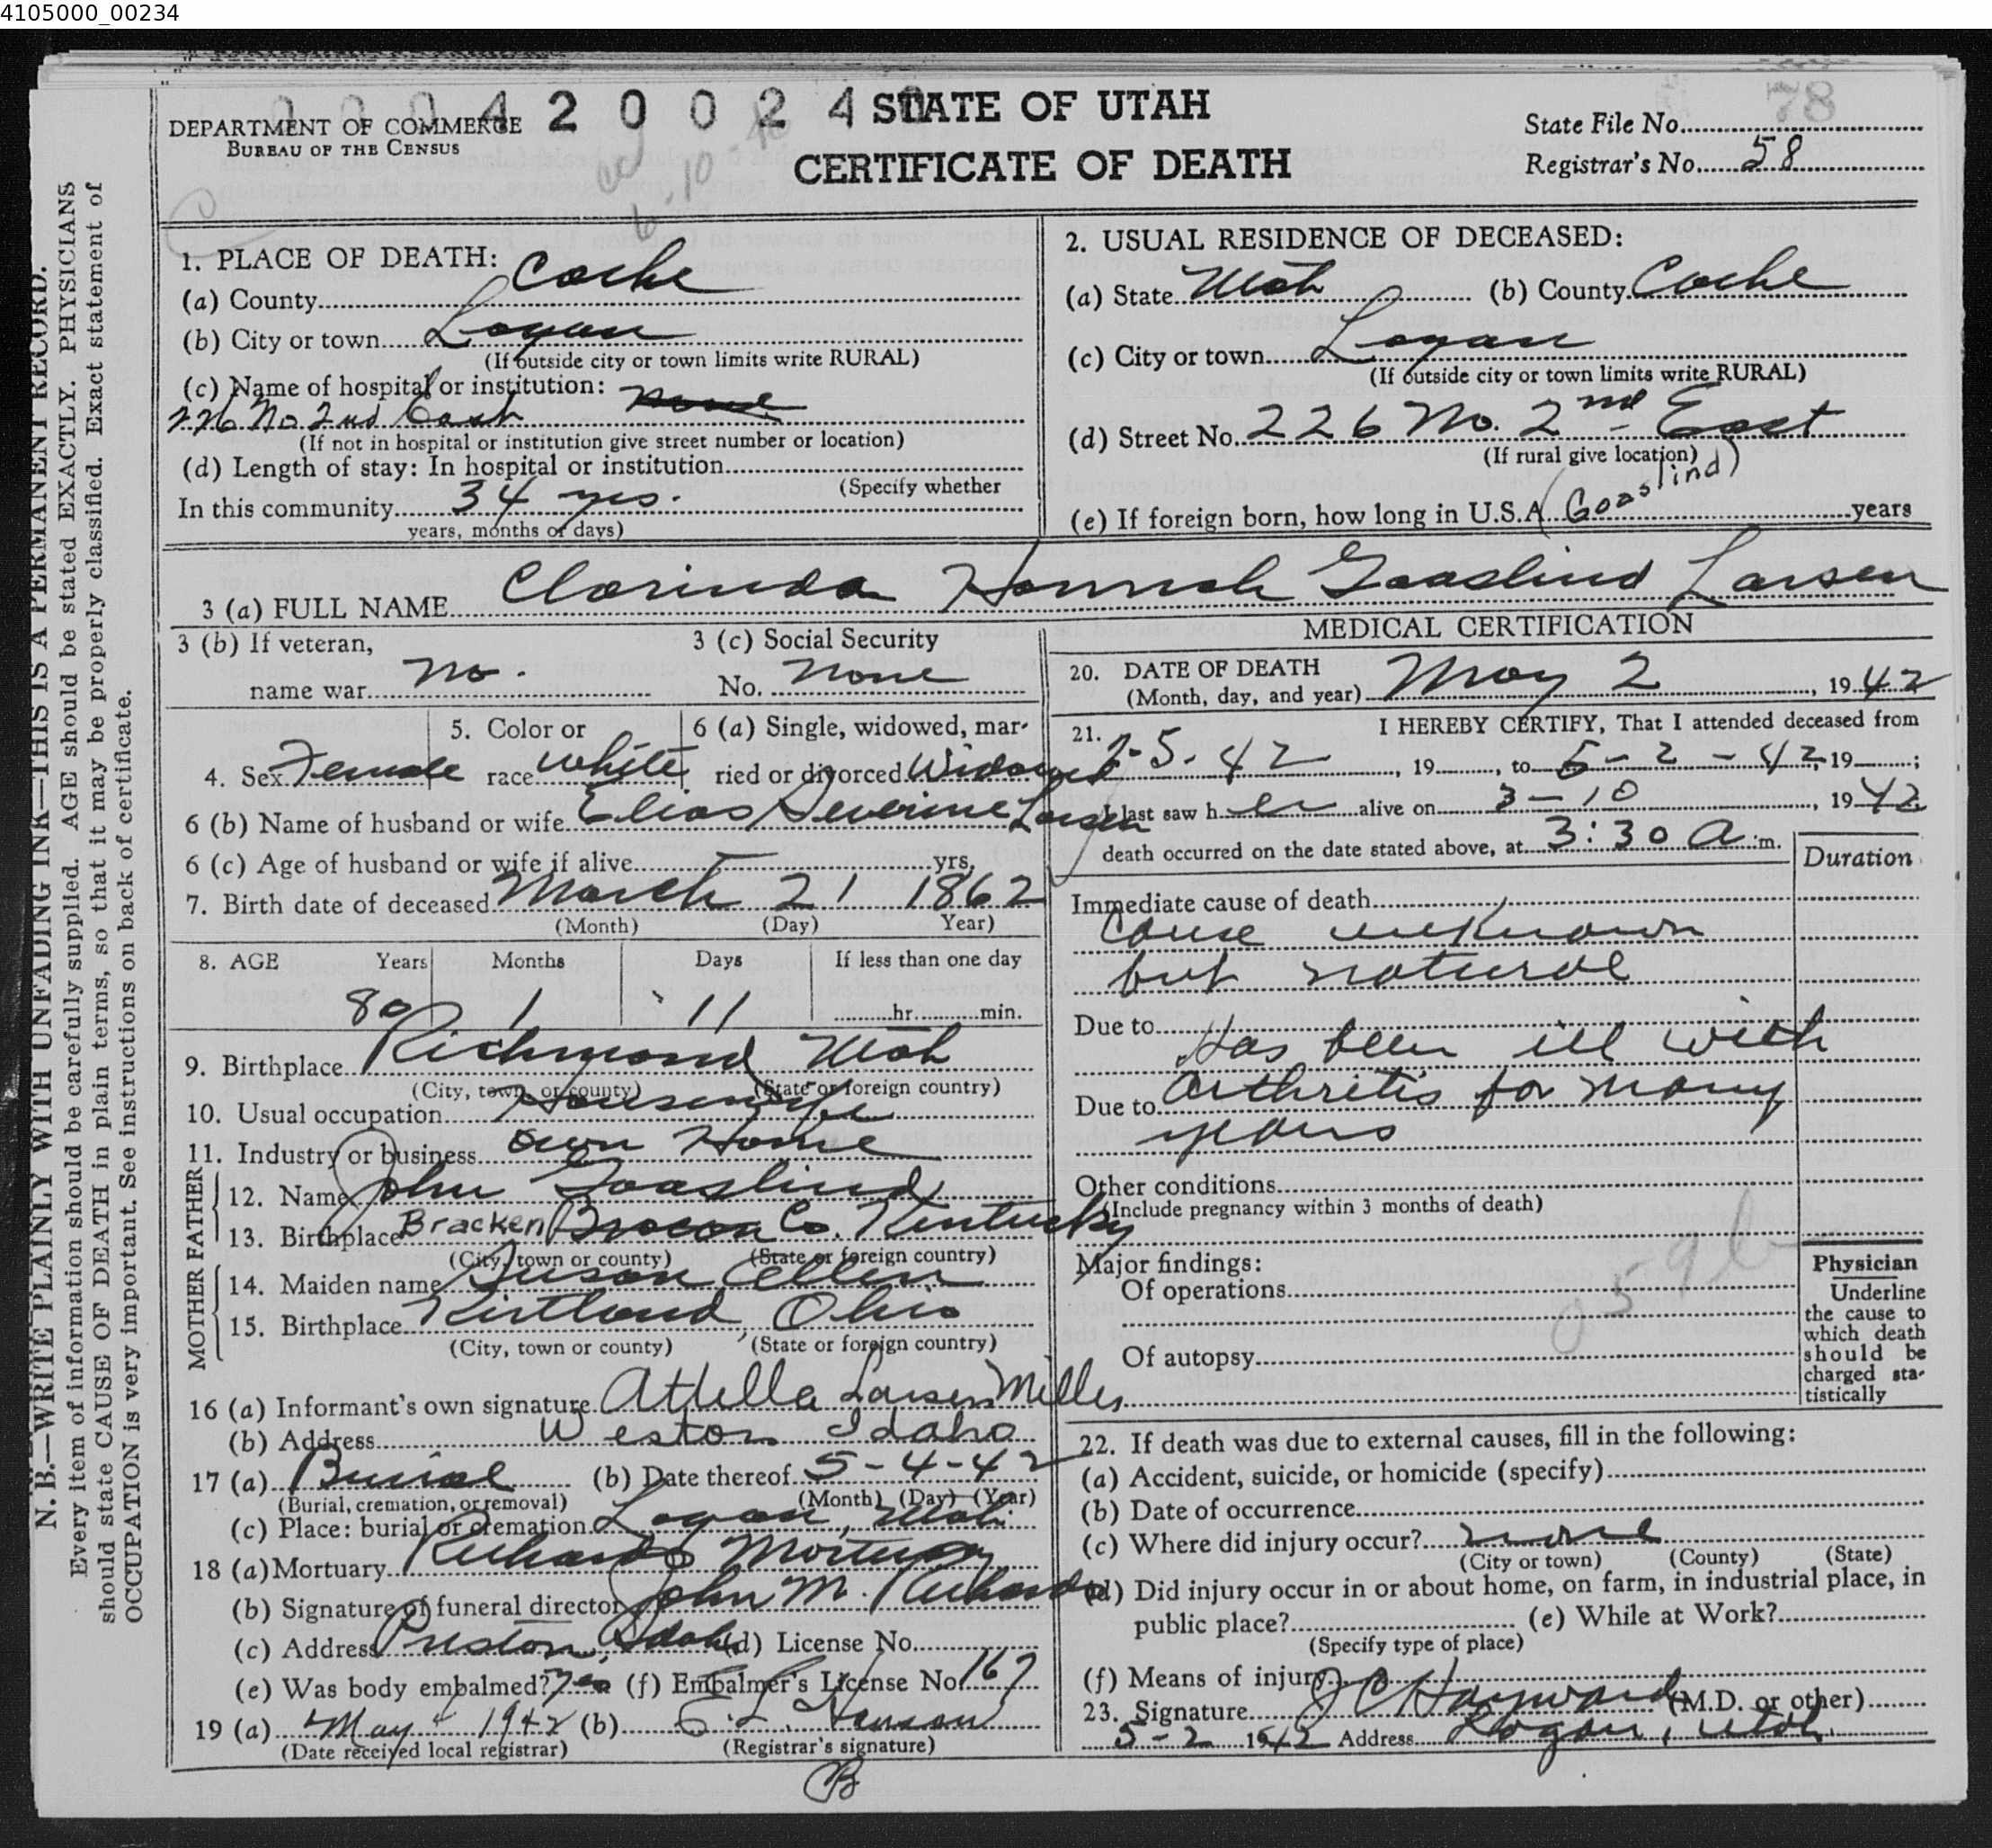 4105000_00234
0 0 0 4 2 0 0 2 4 0
STATE OF UTAH
CERTIFICATE OF DEATH
DEPARTMENT OF COMMERCE
BUREAU OF THE CENSUS
78
State File No.
Registrar's No. 58
N. B.—WRITE PLAINLY WITH UNFADING INK—THIS IS A PERMANENT RECORD.
Every item of information should be carefully supplied. AGE should be stated EXACTLY. PHYSICIANS
should state CAUSE OF DEATH in plain terms, so that it may be properly classified. Exact statement of
OCCUPATION is very important. See instructions on back of certificate.
1. PLACE OF DEATH:
(a) County Cache
(b) City or town Logan
(If outside city or town limits write RURAL)
(c) Name of hospital or institution: None
226 No 2nd East
(If not in hospital or institution give street number or location)
(d) Length of stay: In hospital or institution
(Specify whether
In this community 34 yrs.
years, months or days)
2. USUAL RESIDENCE OF DECEASED:
(a) State Utah (b) County Cache
(c) City or town Logan
(If outside city or town limits write RURAL)
(d) Street No. 226 No. 2nd East
(If rural give location)
(e) If foreign born, how long in U.S.A. years
(Goaslind)
3 (a) FULL NAME Clarinda Hannah Goaslind Larsen
3 (b) If veteran,
name war No.
3 (c) Social Security
No. None
4. Sex Female
5. Color or
race White
6 (a) Single, widowed, married or divorced Widowed
6 (b) Name of husband or wife Elias Severine Larsen
6 (c) Age of husband or wife if alive — yrs.
7. Birth date of deceased March 21 1862
(Month) (Day) Year)
8. AGE Years Months Days If less than one day
80 1 11 hr. min.
9. Birthplace Richmond Utah
(City, town or county) (State or foreign country)
10. Usual occupation Housewife
11. Industry or business Own Home
FATHER
12. Name John Goaslind
13. Birthplace Bracken Co. Kentucky
(City, town or county) (State or foreign country)
MOTHER
14. Maiden name Susan Ellen
15. Birthplace Kirtland Ohio
(City, town or county) (State or foreign country)
16 (a) Informant's own signature Attella Larsen Milles
(b) Address Weston Idaho
17 (a) Burial (b) Date thereof 5-4-42
(Burial, cremation, or removal) (Month) (Day) (Year)
(c) Place: burial or cremation Logan, Utah
18 (a) Mortuary Richards Mortuary
(b) Signature of funeral director John M. Richards
(c) Address Preston, Idaho (d) License No.
(e) Was body embalmed? Yes (f) Embalmer's License No. 167
19 (a) May 4 1942 (b) C. L. Hanson
(Date received local registrar) (Registrar's signature)
B
MEDICAL CERTIFICATION
20. DATE OF DEATH
(Month, day, and year) May 2, 1942
21. I HEREBY CERTIFY, That I attended deceased from
5. 42, 19 , to 5-2-42, 19 ;
I last saw her alive on 3-10, 1942
death occurred on the date stated above, at 3:30 a.m.
Duration
Immediate cause of death
Cause unknown
but natural
Due to
Has been ill with
Due to arthritis for many
years
Other conditions
(Include pregnancy within 3 months of death)
Major findings:
Of operations
Of autopsy
Physician
Underline
the cause to
which death
should be
charged sta-
tistically
22. If death was due to external causes, fill in the following:
(a) Accident, suicide, or homicide (specify)
(b) Date of occurrence
(c) Where did injury occur? none
(City or town) (County) (State)
(d) Did injury occur in or about home, on farm, in industrial place, in
public place? (e) While at Work?
(Specify type of place)
(f) Means of injury
23. Signature J C Hayward (M.D. or other)
5-2 1942 Address Logan, Utah